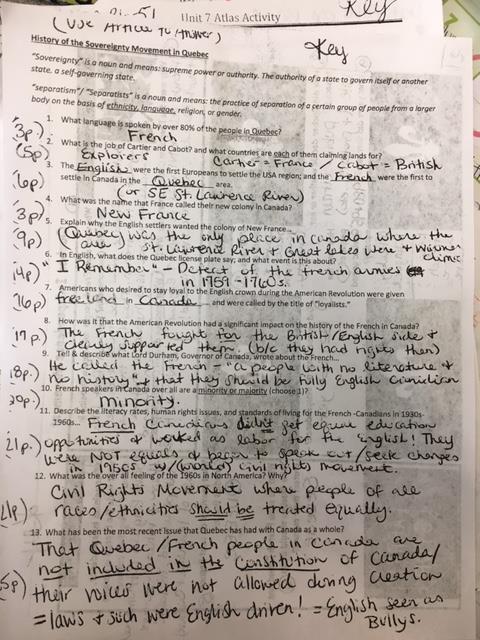 p. 51
(Use Article To Answer)
Unit 7 Atlas Activity
Key
History of the Sovereignty Movement in Quebec
Key
"Sovereignty" is a noun and means: supreme power or authority. The authority of a state to govern itself or another
state. a self-governing state.
"separatism"/ "Separatists" is a noun and means: the practice of separation of a certain group of people from a larger
body on the basis of ethnicity, language, religion, or gender.
1. What language is spoken by over 80% of the people in Quebec?
(3p.) French
2. What is the job of Cartier and Cabot? and what countries are each of them claiming lands for?
(5p) Explorers Cartier = France / Cabot = British
3. The English were the first Europeans to settle the USA region; and the French were the first to
(6p.) settle in Canada in the Quebec area.
(or SE St. Lawrence River)
4. What was the name that France called their new colony in Canada?
(3p.) New France
5. Explain why the English settlers wanted the colony of New France...
(9p) (Quebec) was the only place in canada where the
area St. Lawrence River + Great lakes were + warmer climate
6. In English, what does the Quebec license plate say; and what event is this about?
(14p) "I Remember" - Defeat of the french armies
in 1759 - 1760s.
7. Americans who desired to stay loyal to the English crown during the American Revolution were given
(16p.) free land in Canada and were called by the title of "loyalists."
8. How was it that the American Revolution had a significant impact on the history of the French in Canada?
(17p.) The French fought for the British/English side +
clearly supported them (b/c they had rights then)
9. Tell & describe what Lord Durham, Governor of Canada, wrote about the French...
(18p.) He called the French - "a people with no literature +
no history" + that they should be fully English Canadian
10. French speakers in Canada over all are a minority or majority (choose 1)?
(20p.) minority.
11. Describe the literacy rates, human rights issues, and standards of living for the French-Canadians in 1930s-
1960s... French Canadians didn't get equal education
(21p.) opportunities + worked as labor for the English! They
were NOT equals + began to speak out/seek changes
in 1950s w/(world) civil rights movement.
12. What was the over all feeling of the 1960s in North America? Why?
Civil Rights Movement where people of all
(21p) races/ethnicities should be treated equally.
13. What has been the most recent issue that Quebec has had with Canada as a whole?
That Quebec/French people in Canada are
not included in the Constitution of Canada/
5p) their voices were not allowed during creation
= laws + such were English driven! = English seen as
Bullys.